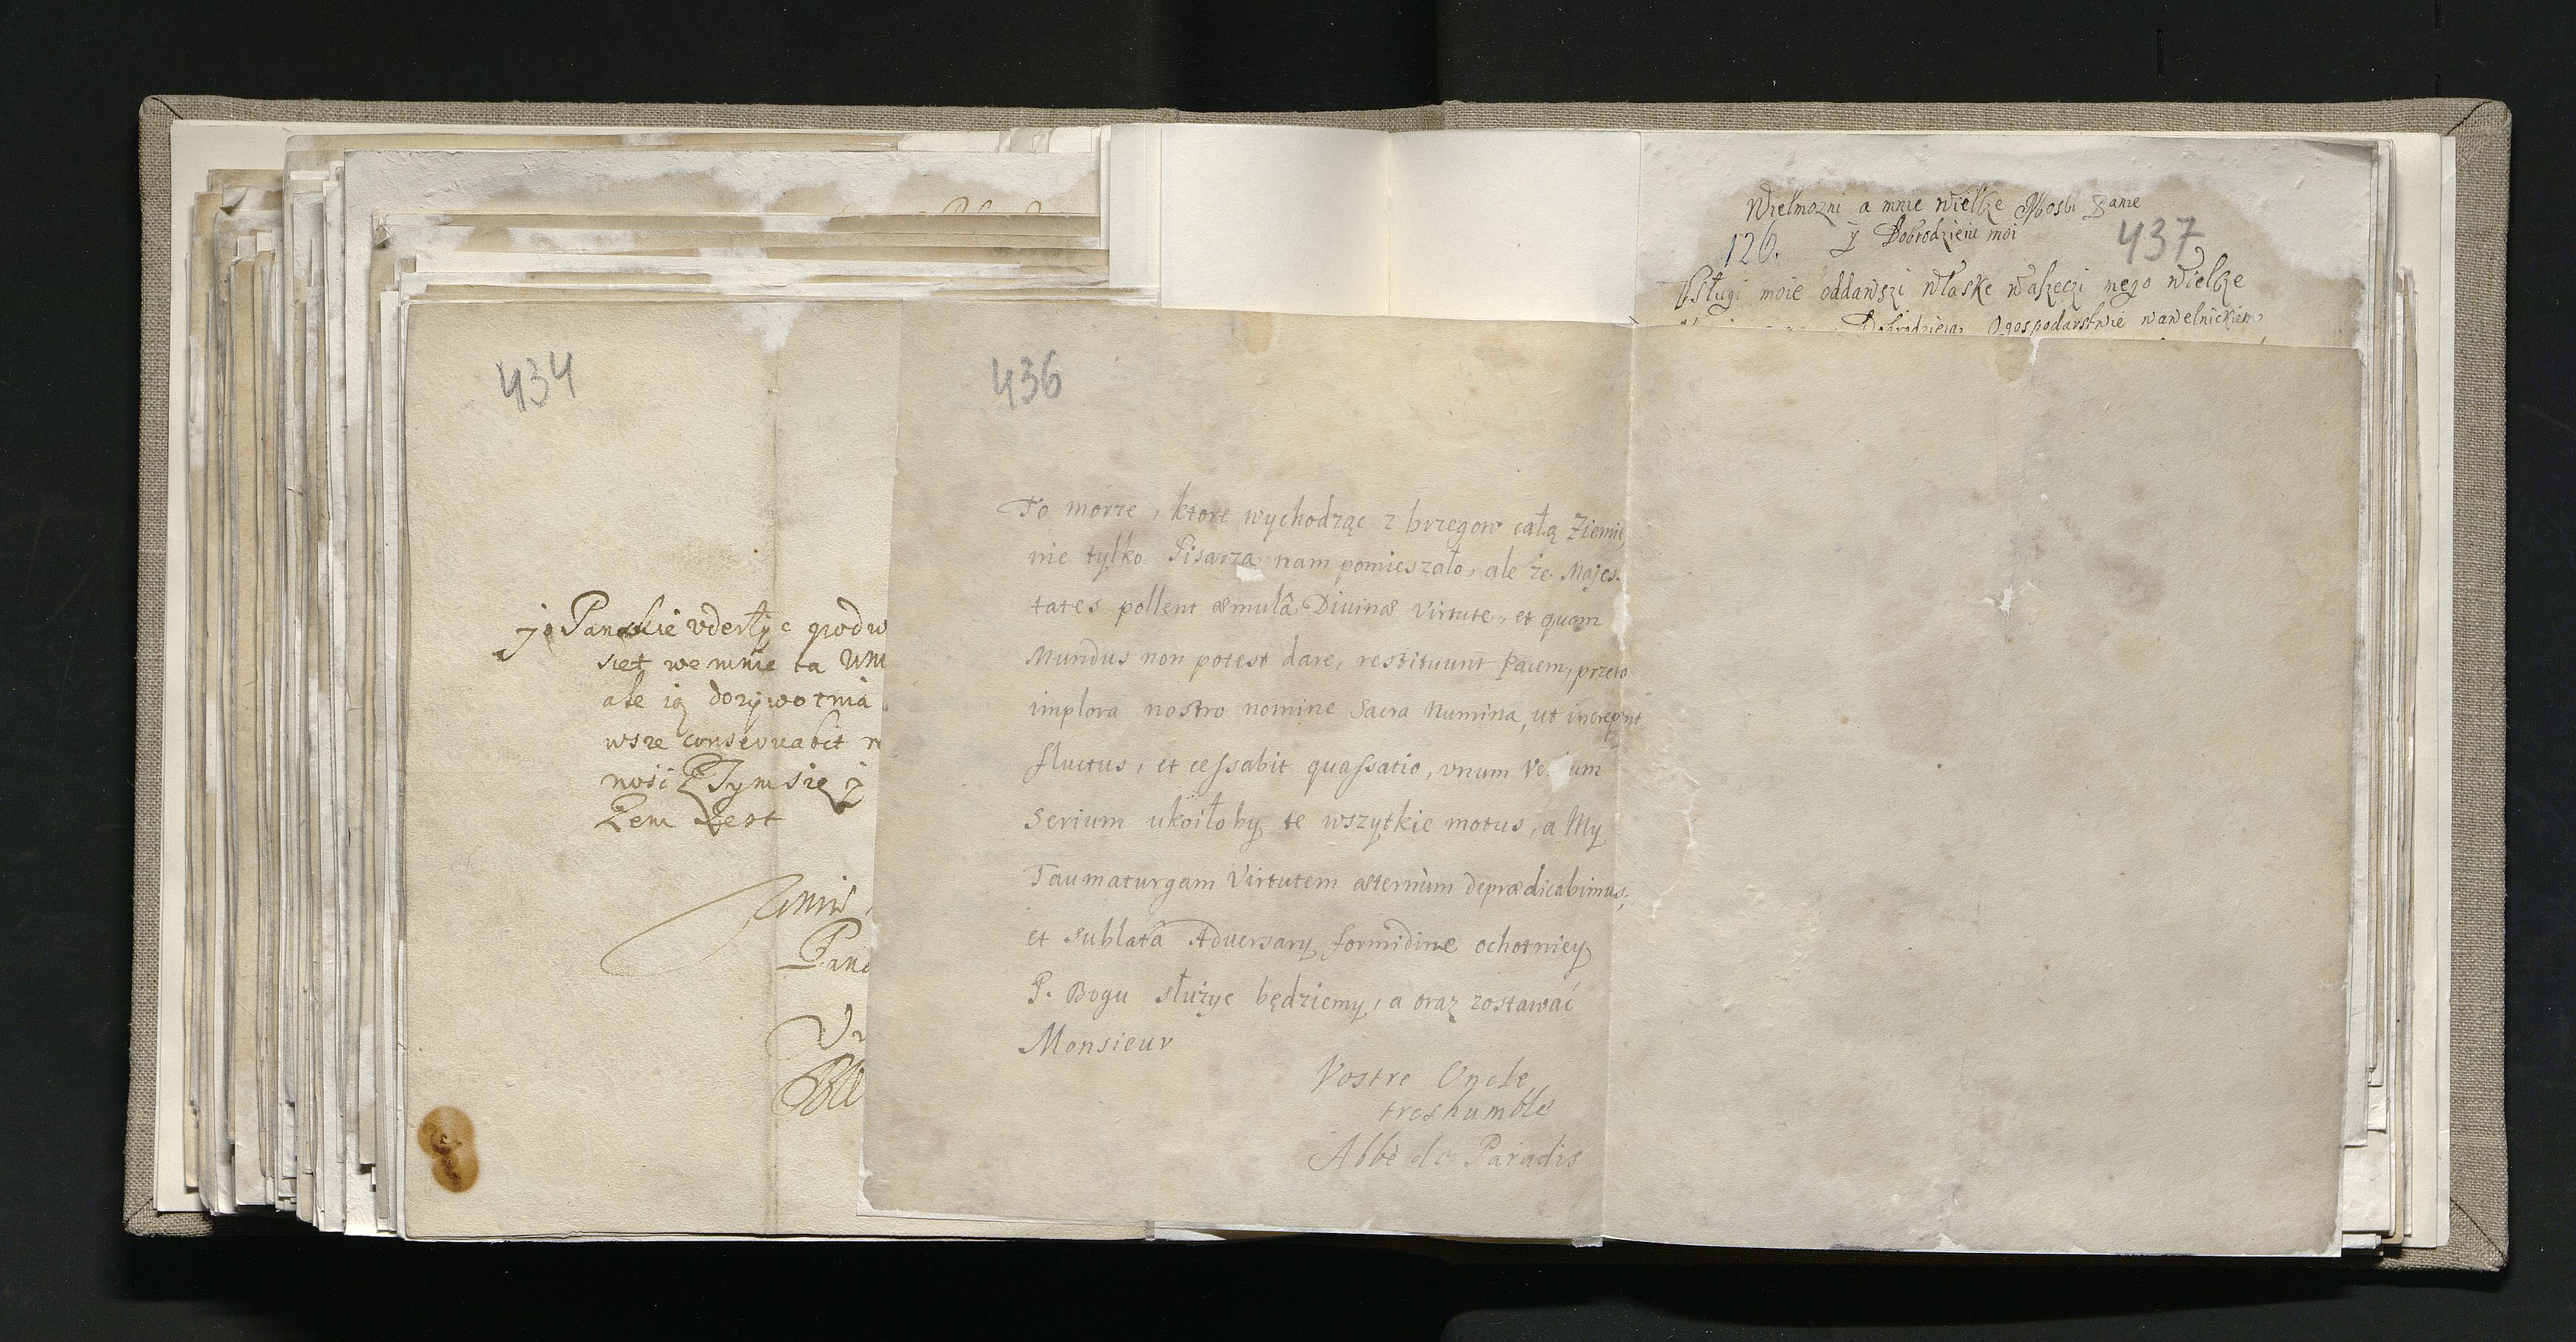 434
jo Panskie vderłÿc
siet we mnie ta
ale ią dozÿwotnia
wsze conservabit
nosi ZTym się
Żem Iest
436
To morze, ktore wychodząc z brzegow całą Ziemię
nie tylko Pisarza nam pomieszało, ale że Majes-
tates pollent æmulâ Divinæ Virtute, et quam
Mundus non potest dare, restituunt Pacem, przeto
implora nostro nomine Sacra Numina, ut increpent
fluctus, et cessabit quassatio, vnum Ve um
Serium ukoiłoby te wszytkie motus, a My
Taumaturgam Virtutem æternùm deprædicabimus;
et sublatâ Adversarij formidine ochotniey
P. Bogu służyc będziemy, a oraz zostawać
Monsieur
Vostre Oncle
treshumble
Abbè de Paradis
Wielmozni a mnie Wielce Mosci Panie
126. y Dobrodzieiu moi 437
Vsługi moie oddawszi właske waszeczi mego wielce
Dobrodzieia, Ogospodarstwie wawelnickiem